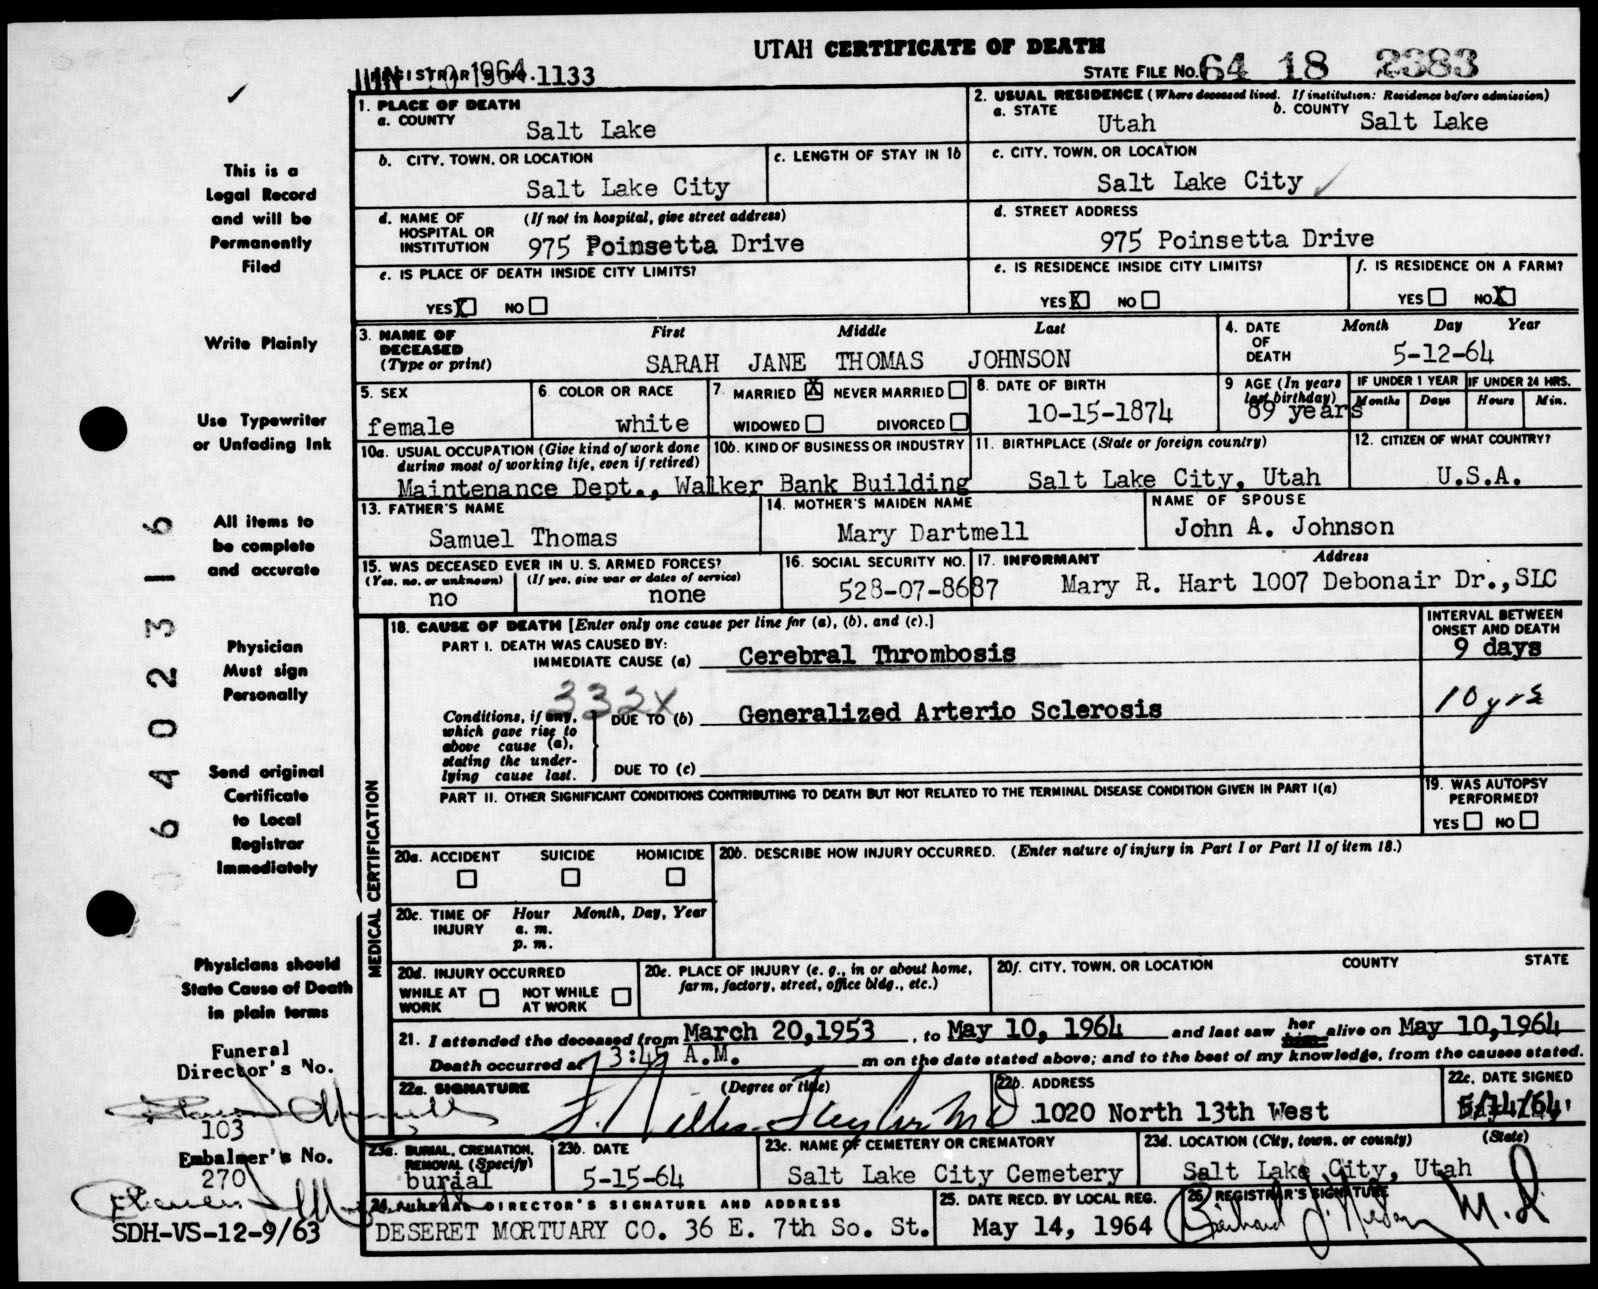 UTAH CERTIFICATE OF DEATH
REGISTRAR'S NO. 1133
JUN 10 1964
STATE FILE NO. 64 18 2383
This is a
Legal Record
and will be
Permanently
Filed
Write Plainly
Use Typewriter
or Unfading Ink
All items to
be complete
and accurate
Physician
Must sign
Personally
Send original
Certificate
to Local
Registrar
Immediately
Physicians should
State Cause of Death
in plain terms
Funeral
Director's No.
103
Embalmer's No.
270
SDH-VS-12-9/63
64023-16
1. PLACE OF DEATH
a. COUNTY
Salt Lake
2. USUAL RESIDENCE (Where deceased lived. If institution: Residence before admission)
a. STATE
Utah
b. COUNTY
Salt Lake
b. CITY, TOWN, OR LOCATION
Salt Lake City
c. LENGTH OF STAY IN 1b
c. CITY, TOWN, OR LOCATION
Salt Lake City
d. NAME OF HOSPITAL OR INSTITUTION
(If not in hospital, give street address)
975 Poinsetta Drive
d. STREET ADDRESS
975 Poinsetta Drive
e. IS PLACE OF DEATH INSIDE CITY LIMITS?
YES X NO
e. IS RESIDENCE INSIDE CITY LIMITS?
YES X NO
f. IS RESIDENCE ON A FARM?
YES NO X
3. NAME OF DECEASED (Type or print)
First Middle Last
SARAH JANE THOMAS JOHNSON
4. DATE OF DEATH
Month Day Year
5-12-64
5. SEX
female
6. COLOR OR RACE
white
7. MARRIED X NEVER MARRIED
WIDOWED DIVORCED
8. DATE OF BIRTH
10-15-1874
9 AGE (In years last birthday)
89 years
IF UNDER 1 YEAR
Months Days
IF UNDER 24 HRS.
Hours Min.
10a. USUAL OCCUPATION (Give kind of work done
during most of working life, even if retired)
10b. KIND OF BUSINESS OR INDUSTRY
Maintenance Dept., Walker Bank Building
11. BIRTHPLACE (State or foreign country)
Salt Lake City, Utah
12. CITIZEN OF WHAT COUNTRY?
U.S.A.
13. FATHER'S NAME
Samuel Thomas
14. MOTHER'S MAIDEN NAME
Mary Dartmell
NAME OF SPOUSE
John A. Johnson
15. WAS DECEASED EVER IN U. S. ARMED FORCES?
(Yes, no, or unknown)
no
(If yes, give war or dates of service)
none
16. SOCIAL SECURITY NO.
528-07-8687
17. INFORMANT Address
Mary R. Hart 1007 Debonair Dr., SLC
MEDICAL CERTIFICATION
18. CAUSE OF DEATH [Enter only one cause per line for (a), (b), and (c).]
INTERVAL BETWEEN
ONSET AND DEATH
PART I. DEATH WAS CAUSED BY:
IMMEDIATE CAUSE (a) Cerebral Thrombosis
9 days
332X
Conditions, if any,
which gave rise to
above cause (a),
stating the under-
lying cause last.
DUE TO (b) Generalized Arterio Sclerosis
10 yrs
DUE TO (c)
PART II. OTHER SIGNIFICANT CONDITIONS CONTRIBUTING TO DEATH BUT NOT RELATED TO THE TERMINAL DISEASE CONDITION GIVEN IN PART I(a)
19. WAS AUTOPSY
PERFORMED?
YES NO
20a. ACCIDENT SUICIDE HOMICIDE
20b. DESCRIBE HOW INJURY OCCURRED. (Enter nature of injury in Part I or Part II of item 18.)
20c. TIME OF INJURY
Hour Month, Day, Year
a. m.
p. m.
20d. INJURY OCCURRED
WHILE AT WORK
NOT WHILE AT WORK
20e. PLACE OF INJURY (e. g., in or about home,
farm, factory, street, office bldg., etc.)
20f. CITY, TOWN, OR LOCATION COUNTY STATE
21. I attended the deceased from March 20,1953, to May 10, 1964 and last saw her him alive on May 10,1964
Death occurred at 3:45 A.M. m on the date stated above; and to the best of my knowledge, from the causes stated.
22a. SIGNATURE (Degree or title)
22b. ADDRESS
1020 North 13th West
22c. DATE SIGNED
5/14/64
23a. BURIAL, CREMATION, REMOVAL (Specify)
burial
23b. DATE
5-15-64
23c. NAME OF CEMETERY OR CREMATORY
Salt Lake City Cemetery
23d. LOCATION (City, town, or county) (State)
Salt Lake City, Utah
24. FUNERAL DIRECTOR'S SIGNATURE AND ADDRESS
DESERET MORTUARY CO. 36 E. 7th So. St.
25. DATE RECD. BY LOCAL REG.
May 14, 1964
26. REGISTRAR'S SIGNATURE
M.D.